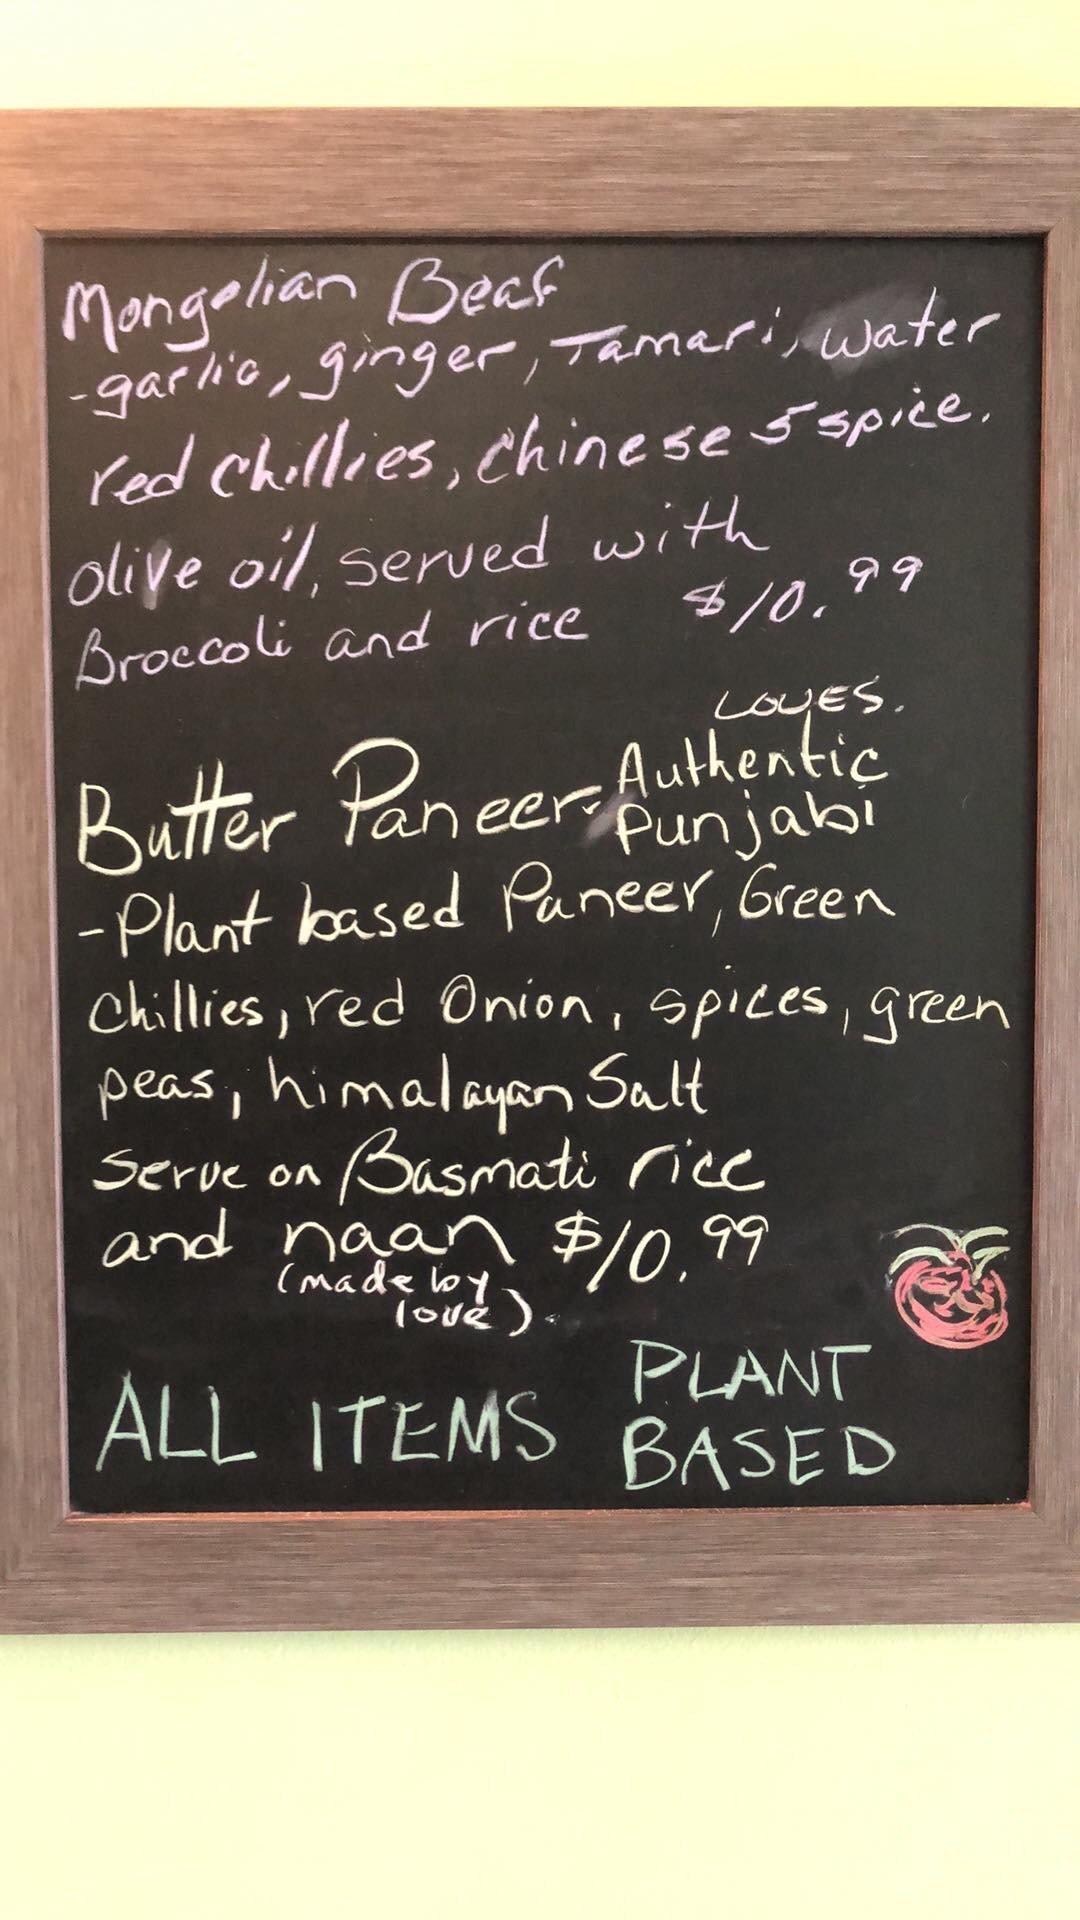 Mongolian Beaf
-garlic, ginger, Tamari, water
red chillies, chinese 5 spice.
olive oil, served with
Broccoli and rice $10.99
LOVES.
Butter Paneer- Authentic
Punjabi
-Plant based Paneer, Green
chillies, red Onion, spices, green
peas, himalayan Salt
Serve on Basmati rice
and naan $10.99
(made by
love).
ALL ITEMS PLANT
BASED